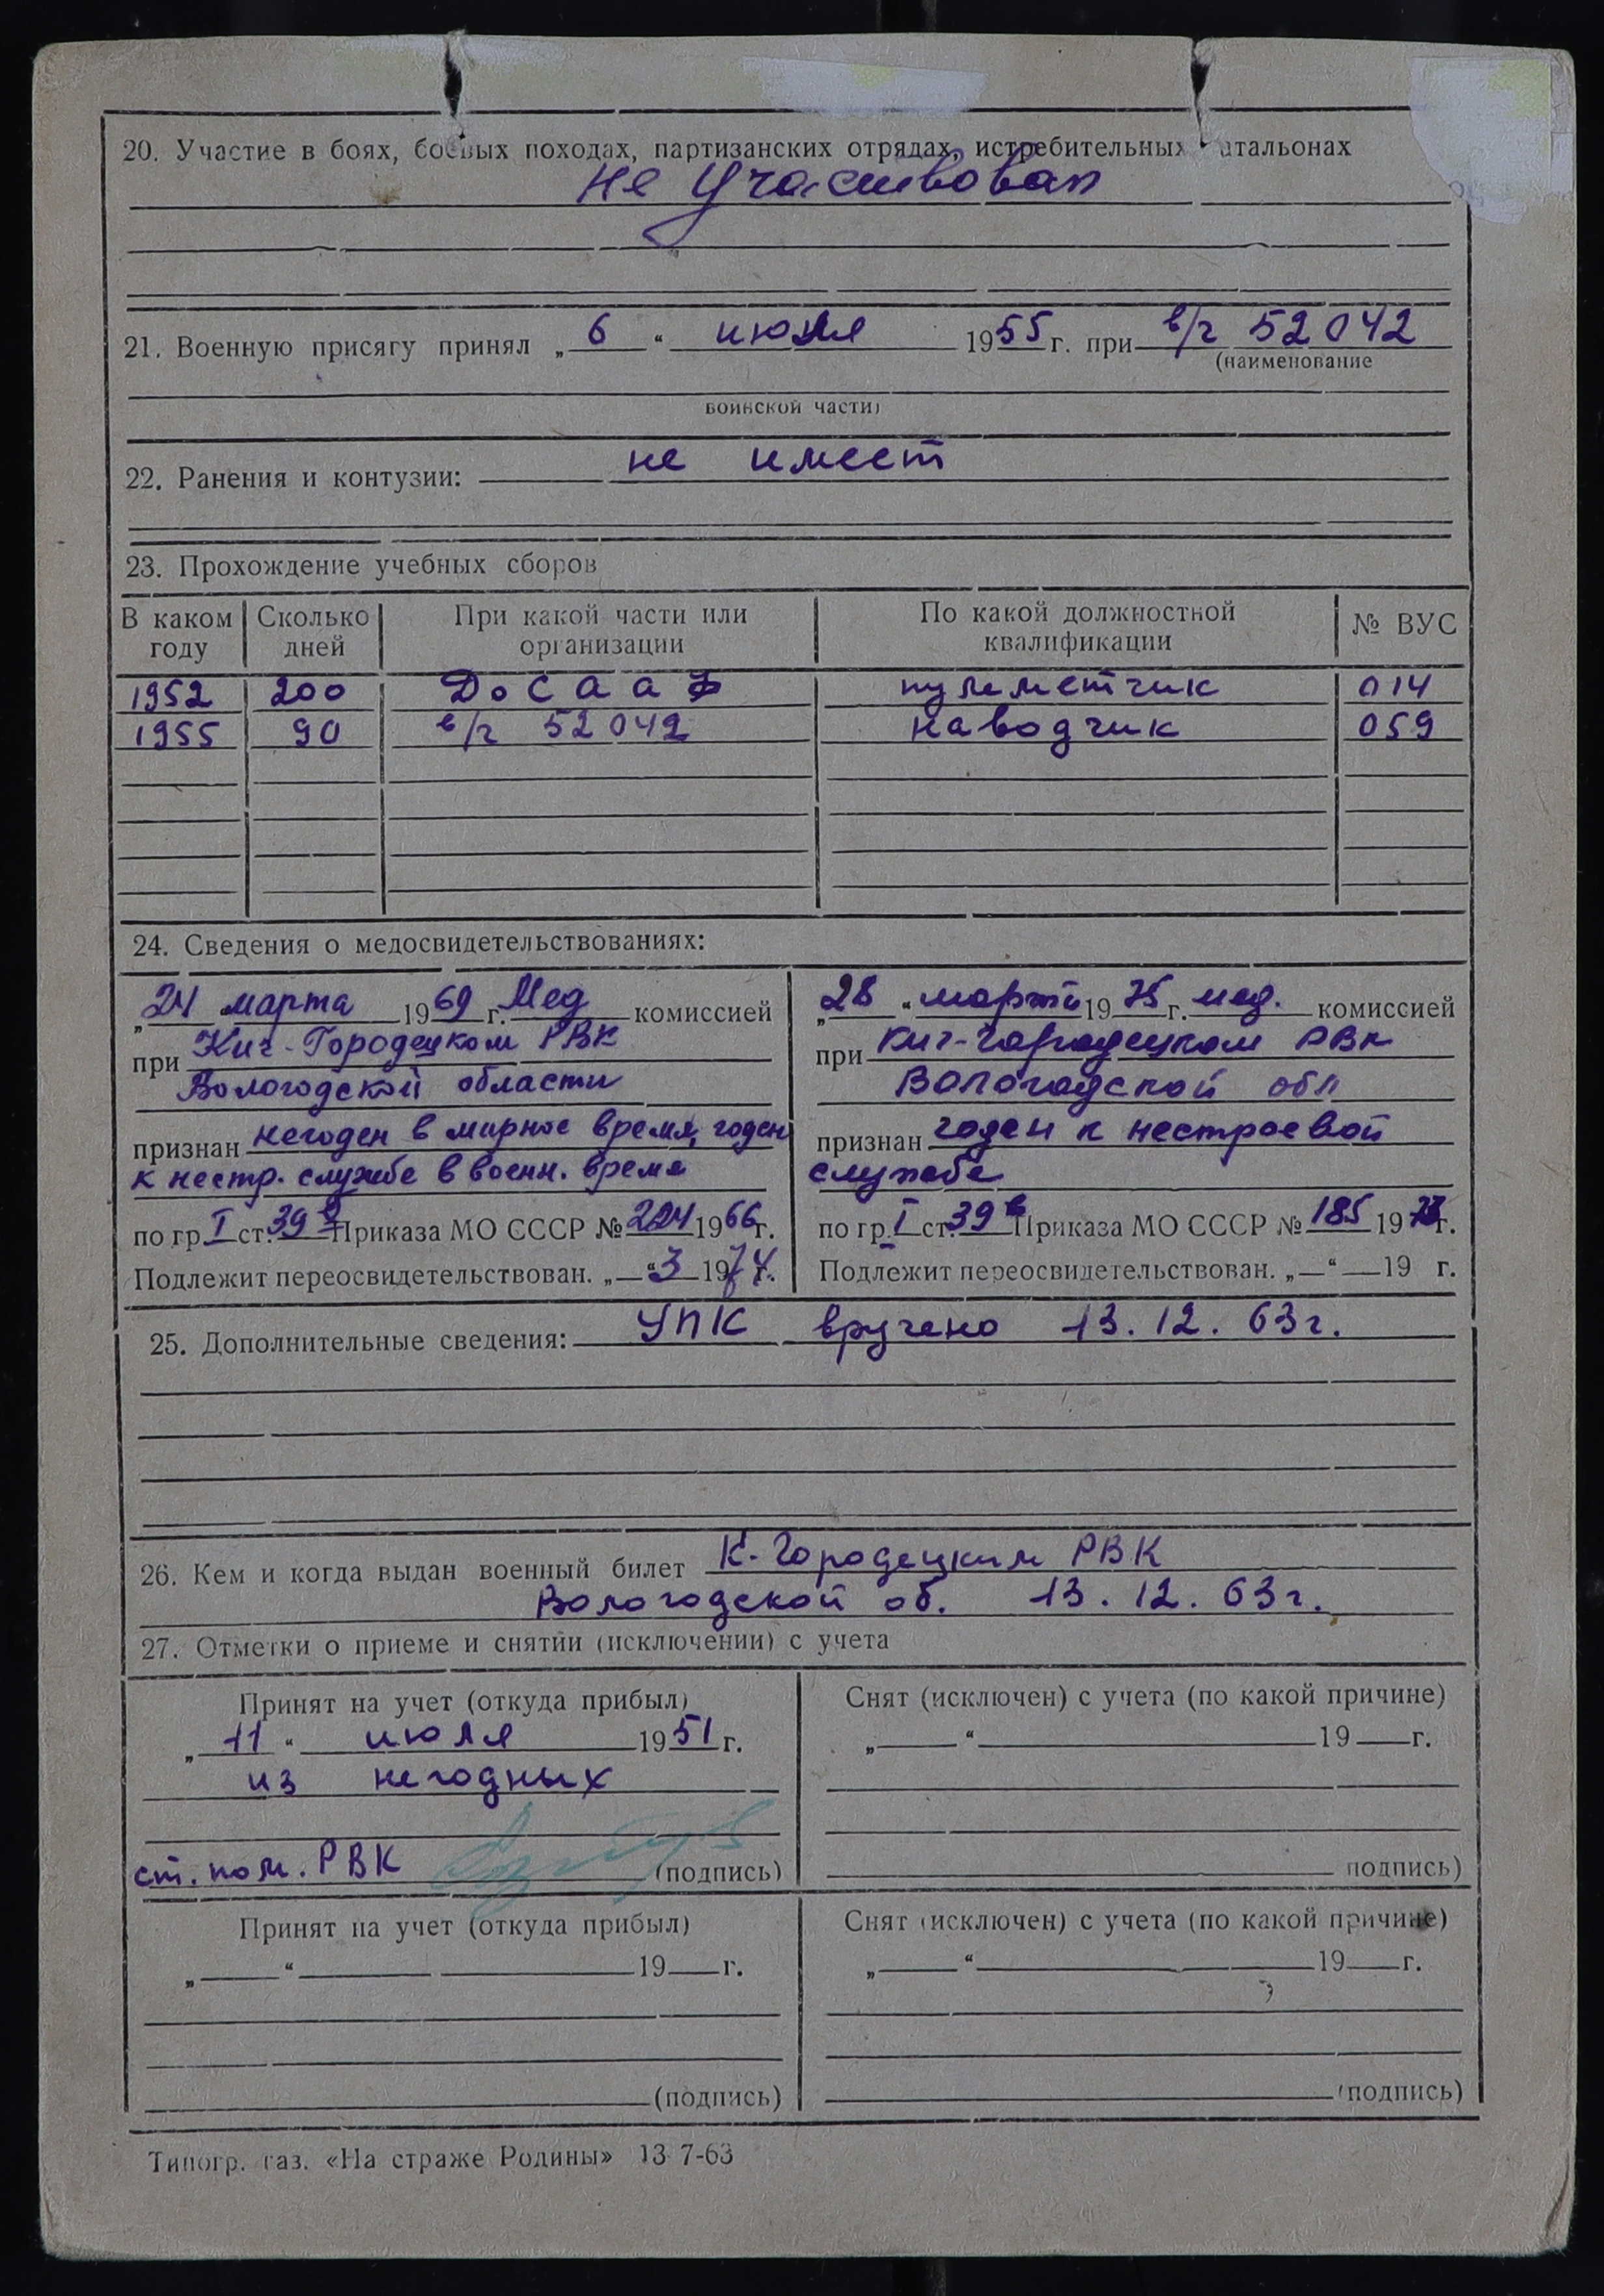 20. Участие в боях, боевых походах, партизанских отрядах, истребительных батальонах
не участвовал
21. Военную присягу принял „6“ июля 1955 г. при в/ч 52042
(наименование
воинской части)
22. Ранения и контузии: не имеет
23. Прохождение учебных сборов
В каком году | Сколько дней | При какой части или организации | По какой должностной квалификации | № ВУС
1952 | 200 | ДОСААФ | пулеметчик | 014
1955 | 90 | в/ч 52042 | наводчик | 059
24. Сведения о медосвидетельствованиях:
„24 марта 1969 г. Мед комиссией
при Кич-Городецком РВК
Вологодской области
признан негоден в мирное время, годен
к нестр. службе в воен. время
по гр I ст. 39 Приказа МО СССР № 224 1966 г.
Подлежит переосвидетельствован. „—“ 3 1974 г.
„28“ марта 1975 г. мед. комиссией
при Кич-Городецком РВК
Вологодской обл
признан годен к нестроевой
службе
по гр. I ст. 39в Приказа МО СССР № 185 1973 г.
Подлежит переосвидетельствован. „—“ — 19 г.
25. Дополнительные сведения: УПК вручено 13.12.63г.
26. Кем и когда выдан военный билет К-Городецким РВК
Вологодской об. 13.12.63г.
27. Отметки о приеме и снятии (исключении) с учета
Принят на учет (откуда прибыл)
„11“ июля 1951 г.
из негодных
ст. пом. РВК (подпись)
Снят (исключен) с учета (по какой причине)
„—“ — 19— г.
(подпись)
Принят на учет (откуда прибыл)
„—“ — 19— г.
(подпись)
Снят (исключен) с учета (по какой причине)
„—“ — 19— г.
(подпись)
Типогр. газ. «На страже Родины» 13 7-63